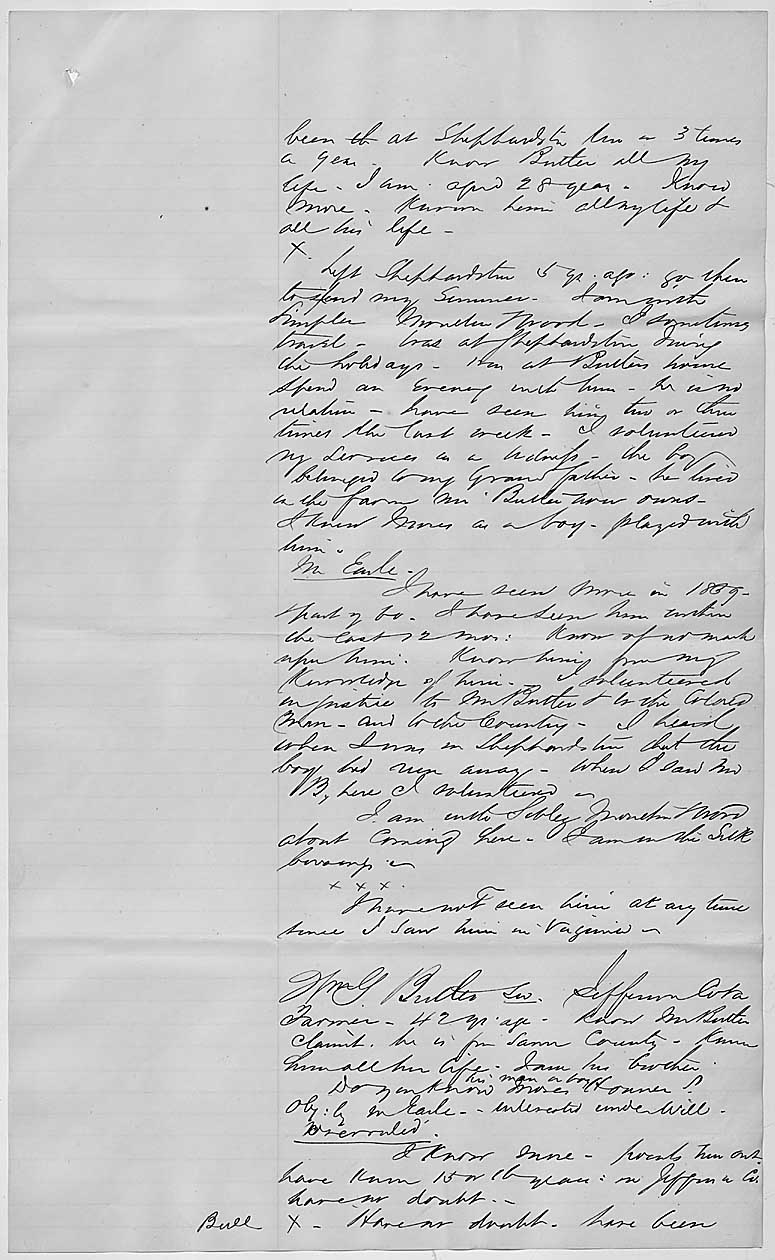 been th at Shephardstn two or 3 times
a year - Know Butler all my
life - I am aged 28 years - Know
Moses - Known him all my life &
all his life -
X.
Left Shephardstn 5 yr. ago: go then
to spend my Summer - I am with
I sometimes
travel - Was at Shephardstn during
the holidays - Was at Butlers house
spend an evening with him - he is no
relation - have seen him two or three
times the last week - I volunteered
my services as a witness - the boy
belonged to my Grand father - he lived
on the farm Mr Butler now owns -
I knew Moses as a boy - played with
him -
Mr Earle -
I have seen Moses in 1859 -
& part of 60. I have seen him within
the last 12 mos: Know of no mark
upon him. Know him from my
Knowledge of him - I volunteered
in justice to Mr Butler & to the Colored
Man - and to the Country - I heard
when I was in Shephardstn that the
boy had run away - When I saw Mr
B, here I volunteered -
I am with Sibley
about coming here - I am in the Silk
business -
x x x.
I have not seen him at any time
since I saw him in Virginia -
Wm G Butler Sw. Jefferson Co Va
Farmer - 42 yr age - Know Mr Butler
Claimt. he is fm same County - Known
him all his life - I am his brother
his man or boy
Do you Know Moses Honner ?
Obj: by Mr Earle - - interested under Will -
Overruled.
I Know Moses - points him out
have Known 15 or 16 years: in Jefferson Co.
have no doubt. -
Bull X - Have no doubt - have been